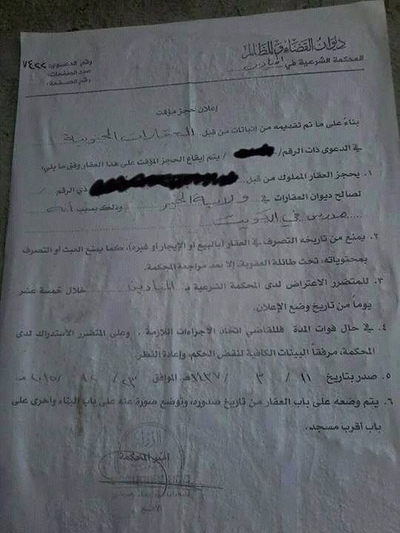 ديوان القضاء والمظالم
المحكمة الشرعية في
رقم الدعوى: ٧٤٢٢
عدد الصفحات:
رقم الصفحة:
إعلان حجز مؤقت
بناءً على ما تم تقديمه من إثباتات من قبل العقارات
في الدعوى ذات الرقم / / يتم إيقاع الحجز المؤقت على هذا العقار وفق ما يلي:
١. يحجز العقار المملوك من قبل ذي الرقم /
لصالح ديوان العقارات في ولاية الخير وذلك بسبب أنه
مدرس في الكويت
٢. يمنع من تاريخه التصرف في العقار (بالبيع أو الإيجار أو غيره)، كما يمنع العبث أو التصرف
بمحتوياته، تحت طائلة العقوبة، إلا بعد مراجعة المحكمة.
٣. للمتضرر الاعتراض لدى المحكمة الشرعية بـ الميادين خلال خمسة عشر
يوماً من تاريخ وضع الإعلان.
٤. في حال فوات المدة فللقاضي اتخاذ الإجراءات اللازمة، وعلى المتضرر الاستدراك لدى
المحكمة، مرفقاً البينات الكافية لنقض الحكم، وإعادة النظر.
٥. صدر بتاريخ ١١ / ٣ / ١٤٣٧هـ الموافق ٢٣ / / ٢٠١٥ مـ
٦. يتم وضعه على باب العقار من تاريخ صدوره، ويوضع صورة عنه على باب البناء وأخرى على
باب أقرب مسجد.
أمير المحكمة